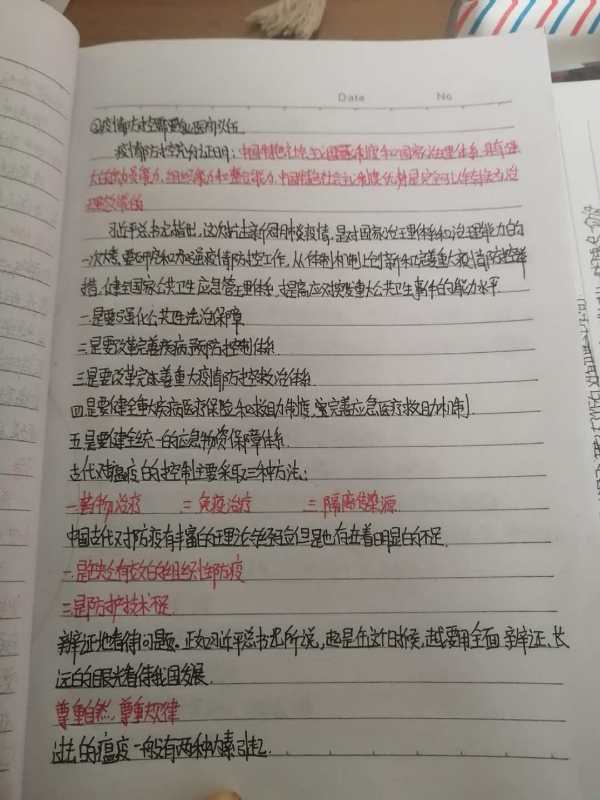 Date No
疫情防控需要专业医疗队伍
疫情防控充分证明：中国特色社会主义制度和国家治理体系具有强
大的动员能力、组织能力和整合能力，中国特色社会主义制度优势是完全可以转化为治
理效能的
习近平总书记指出，这次抗击新冠肺炎疫情，是对国家治理体系和治理能力的
一次大考，要研究和加强疫情防控工作，从体制机制上创新和完善重大疫情防控举
措，健全国家公共卫生应急管理体系，提高应对突发重大公共卫生事件的能力水平
一是要强化公共卫生法治保障
二是要改革完善疾病预防控制体系
三是要改革完善重大疫情防控救治体系
四是要健全重大疾病医疗保险和救助制度，完善应急医疗救助机制
五是要健全统一的应急物资保障体系
古代对瘟疫的控制主要采取三种方法：
一药物治疗 二免疫治疗 三隔离传染源
中国古代对防疫有丰富的理论与经验但是也存在着明显的不足
一是缺乏有效的组织性防疫
二是防护技术不足
辩证地看待问题。正如习近平总书记所说，越是在这个时候，越要用全面、辩证、长
远的眼光看待我国发展
尊重自然，尊重规律
过去的瘟疫一般有两种因素引起